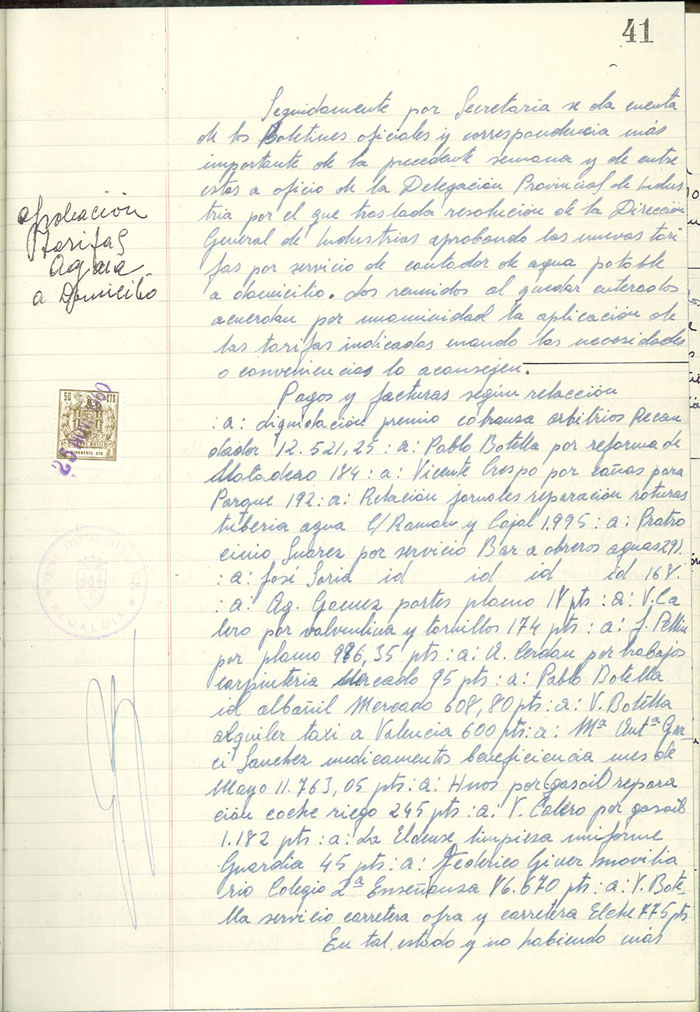 41
Seguidamente por Secretaria se da cuenta
de los Boletines oficiales y correspondencia más
importante de la precedente semana y de entre
estos a oficio de la Delegación Provincial de Indus
tria por el que traslada resolución de la Dirección
General de Industrias aprobando las nuevas tari
fas por servicio de contador de agua potable
a domicilio. Los reunidos al quedar enterados
acuerdan por unanimidad la aplicación de
las tarifas indicadas cuando las necesidades
o conveniencias lo aconsejen.
aprobación
Tarifas
Agua
a Domicilio
Pagos y facturas según relación
:a: liquidación premio cobranza arbitrios Recau
dador 12.521,25 :a: Pablo Botella por reforma de
Matadero 184 :a: Vicente Crespo por cañas para
Parque 192 :a: Relación jornales reparación roturas
tuberia agua C/ Ramon y Cajal 1.995 :a: Patro
cinio Suarez por servicio Bar a obreros aguas 291.
:a: José Soria id id id id 168.
:a: Ag. Gomez portes plomo 18 pts :a: V. Ca
lero por valvulina y tornillos 174 pts :a: J. 
por plomo 986,35 pts :a: A. Cerdan por trabajos
carpinteria Mercado 95 pts :a: Pablo Botella
id albañil Mercado 608,80 pts :a: V. Botella
alquiler taxi a Valencia 600 pts :a: Mª Antª Gar
 Sanchez medicamentos beneficiencia mes de
Mayo 11.763,05 pts :a: Hnos por (gasoil) repara
ción coche riego 245 pts :a: V. Calero por gasoil
1.182 pts :a: La Eldense limpiesa uniforme
Guardia 45 pts :a: Federico Giner movilia
rio Colegio 2ª Enseñanza 76.670 pts :a: V. Bote
lla servicio carretera ofra y carretera Elche 775 pts
En tal estado y no habiendo más
50 CTS
ALCALDIA